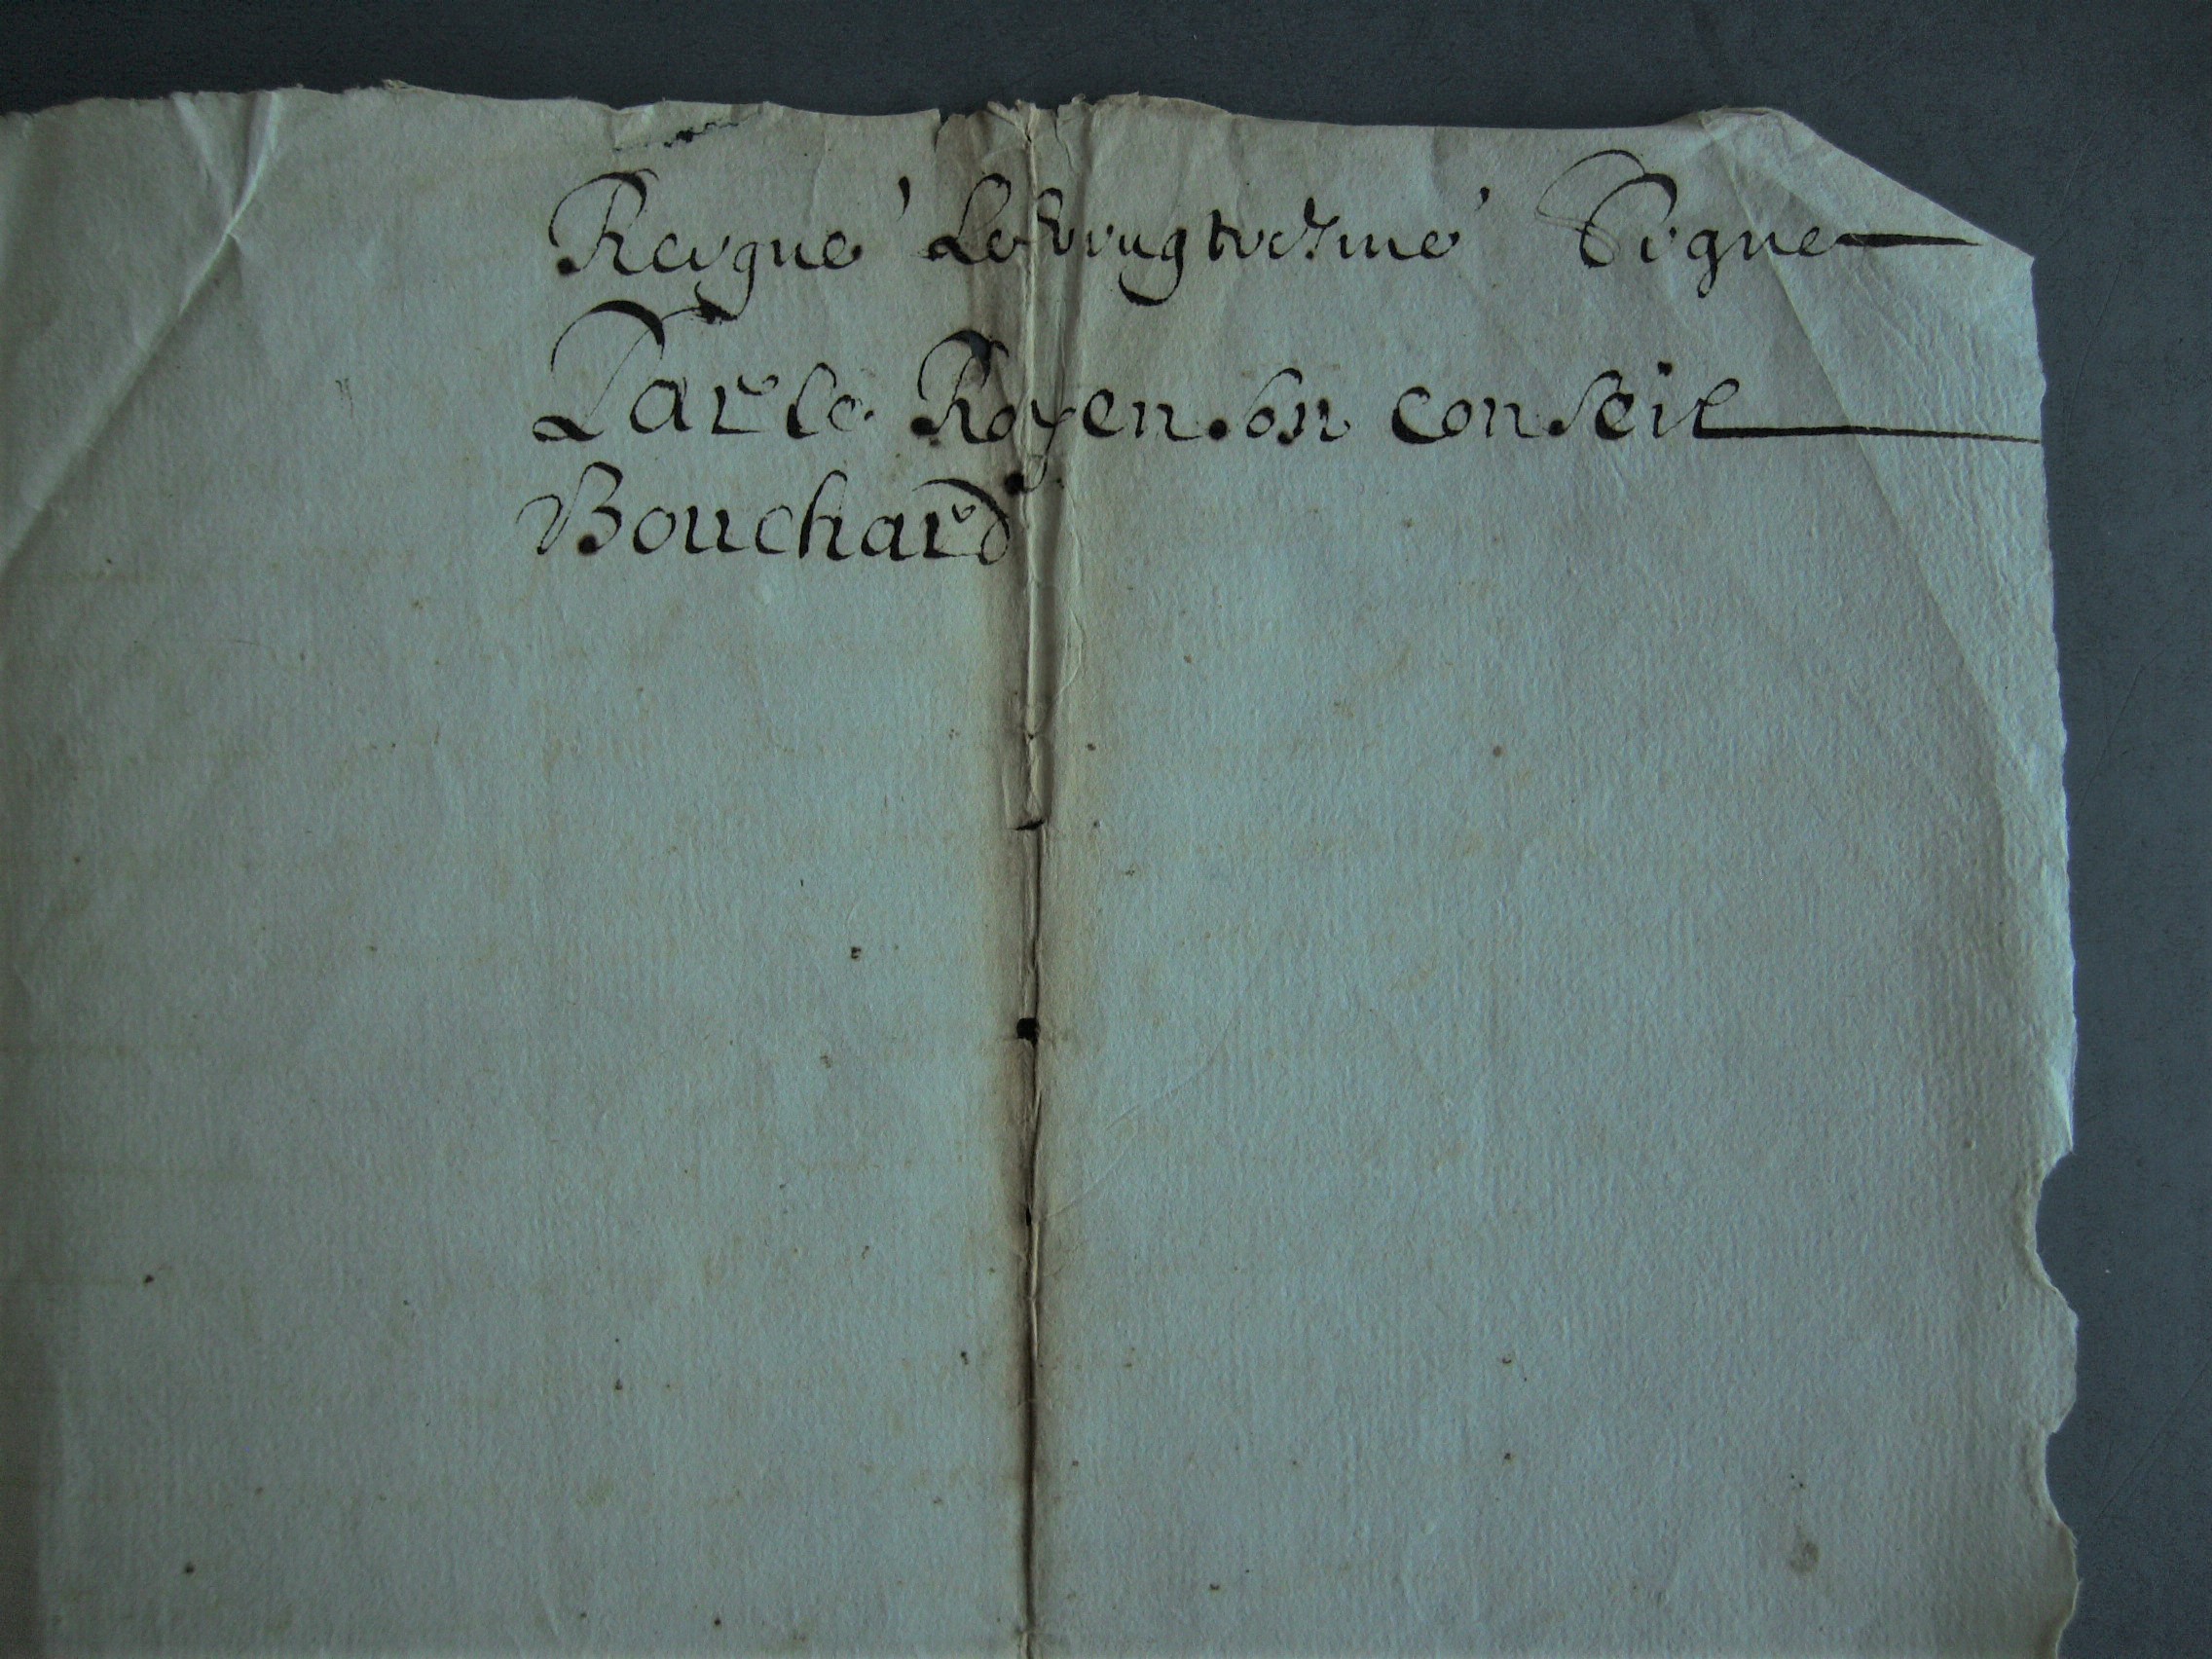 Reygne Le Vingtiesme Signe
Par le Roy en son conseil
Bouchard